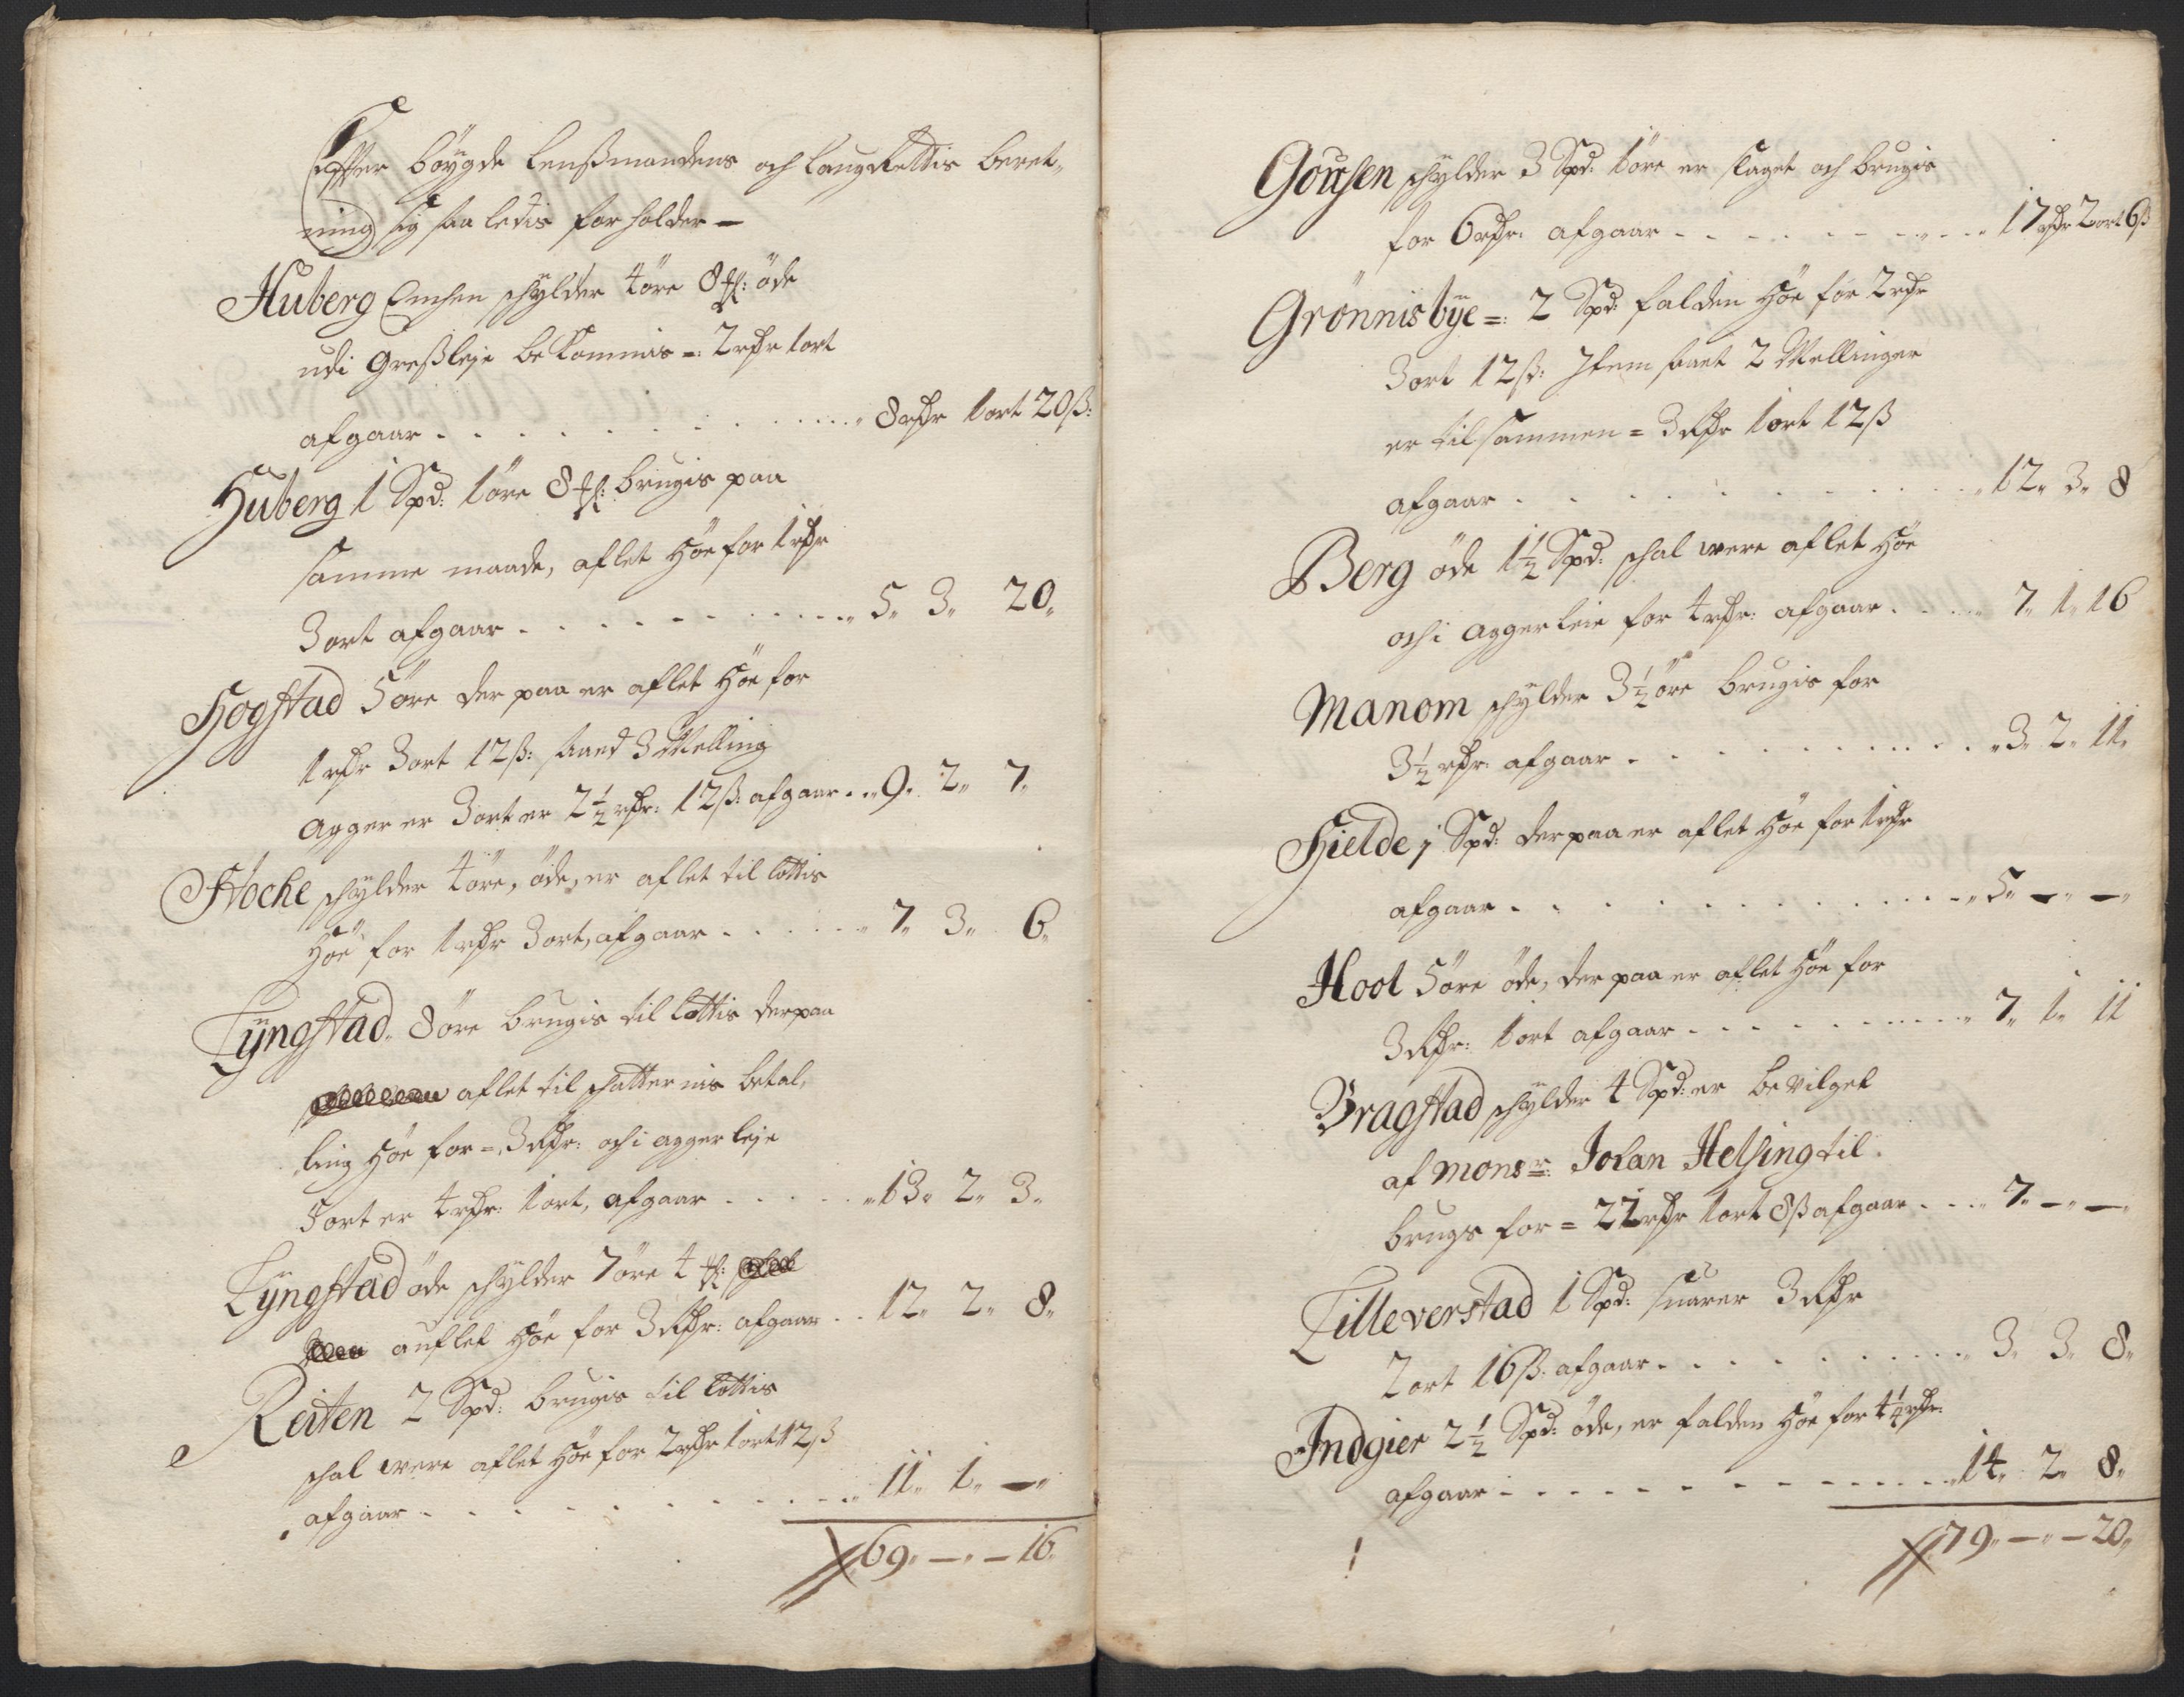 Effterböygde lenßmandens och laugRettis beret,,
ning sig saa ledis forholder –
Huberg Enchen schylder 4 öre 8 öde
udi Greßleje bekommis =: 2 rdr 1 ort
afgaar . . . . . . . . . . 8 rdr 1 ort 20 ß:
Huberg 1 Spd: 1 öre 8 brugis paa
samme maade, aflet Höe for 1 rdr
3 ort afgaar . . . . . . . . 5,, 3,, 20,,
Hogstad 5 öre der paa er aflet Höe for
1 rdr 3 ort 12 ß: saaed 3 Melling
Agger er 3 ort er 2½ rdr: 12 ß: afgaar . . 9,, 2,, 7,,
Hocke schylder 4 öre, öde, er aflet til lottis
Höe for 1 rdr 3 ort, afgaar . . . . . 7,, 3,, 6,,
Lyngstad. 8 öre brugis til lottis derpaa
aflet til schatternis betal,,
ling Höe for =, 3 Rdr: och i aggerleje
5 ort er 4 rdr: 1 ort, afgaar . . . . . 13,, 2,, 3,,
Lyngstad öde schylder 7 öre 4
auflet Höe for 3 Rdr: afgaar . . 12,, 2,, 8,,
Reiten 2 Spd: brugis til lottis
schal were aflet Höe for 2 rdr 1 ort 12 ß
afgaar . . . . . . . . . 11,, 1,, –,,
69,, –,, – 16,,
Goussen schylder 3 Spd: 1 öre er slaget och brugis
for 6 rdr: afgaar . . . . . . . . 17 rdr 2 ort 6 ß
Grönnisbye =: 2 Spd: falden Höe for 2 rdr
3 ort 12 ß: Item saaet 2 Mellinger
er tilsammen = 3 Rdr 1 ort 12 ß
afgaar . . . . . . . . . . 12,, 3,, 8
Berg öde 1½ Spd: schal were aflet Höe
och i aggerleie for 4 rdr: afgaar . . . . 7,, 1,, 16
Manom schylder 3½ öre brugis for
3½ rdr: afgaar . . . . . . . . . 3,, 2,, 11,,
Hielde 1 Spd: derpaa er aflet Höe for 1 rdr
afgaar . . . . . . . . . . . 5,, –,, –,,
Hool 5 öre öde, der paa er aflet Höe for
3 Rdr: 1 ort afgaar . . . . . . . . 7,, 1,, 11
Bragstad schylder 4 Spd: er bevilget
af Monsr: Johan Helsing til
brugs for = 22 rdr 1 ort 8 ß afgaar . . . . 7,, –,, –,,
Lilleverstad 1 Spd: suarer 3 Rdr
2 ort 16 ß: afgaar . . . . . . . . 3,, 3,, 8,,
Indgier 2½ Spd: öde, er falden Höe for 4¼ rdr:
afgaar . . . . . . . . . . . 14,, 2,, 8,,
79,, –,, – 20,,